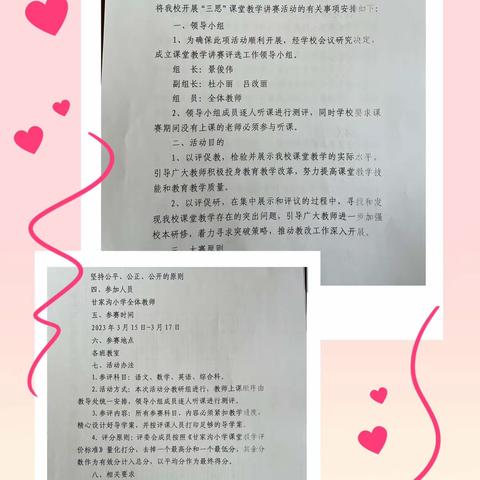 将我校开展“三思”课堂教学讲赛活动的有关事项安排如下：
一、领导小组
1、为确保此项活动顺利开展，经学校会议研究决定，
成立课堂教学讲赛评选工作领导小组．
组　长：景俊伟
副组长：杜小丽　吕改丽
组　员：全体教师
2、领导小组成员逐人听课进行测评，同时学校要求课
赛期间没有上课的老师必须参与听课．
二、活动目的
1、以评促教，检验并展示我校课堂教学的实际水平，
引导广大教师积极投身教育教学改革，努力提高课堂教学技
能和教育教学质量．
2、以评促研，在集中展示和评议的过程中，寻找和发
现我校课堂教学存在的突出问题，引导广大教师进一步加强
校本研修，着力寻求突破策略，推动教改工作深入开展．
三、大赛原则
坚持公平、公正、公开的原则
四、参加人员
甘家沟小学全体教师
五、参赛时间
2023年3月15日-3月17日
六、参赛地点
各班教室
七、活动办法
1.参评科目：语文、数学、英语、综合科．
2.活动方式：本次活动分教研组进行，教师上课顺序由
教导处统一安排，领导小组成员逐人听课进行测评．
3.参评内容：所有参赛科目，内容必须紧扣教学进度，
精心设计好导学案，并按评课人员打印足够的导学案．
4．评分原则：评委会成员按照《甘家沟小学课堂教学评
价标准》量化打分，去掉一个最高分和一个最低分，其余分
数作为有效分计入总分，以平均分作为最终得分．
八、相关要求